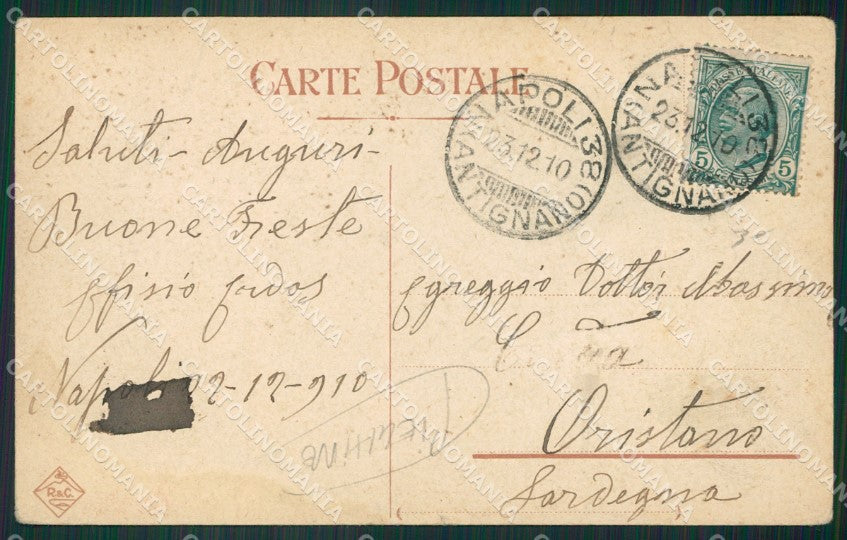 CARTE POSTALE
NAPOLI 38 (O)
23.12.10
(ANTIGNANO)
NAPOLI 38
23.12.10
(ANTIGNANO
POSTE ITALIANE
5 5
Saluti - Auguri -
Buone Feste
Effisio
Napoli 22-12-910
Egreggio Dottor
Oristano
Sardegna
R&C.
CARTOLINOMANIA